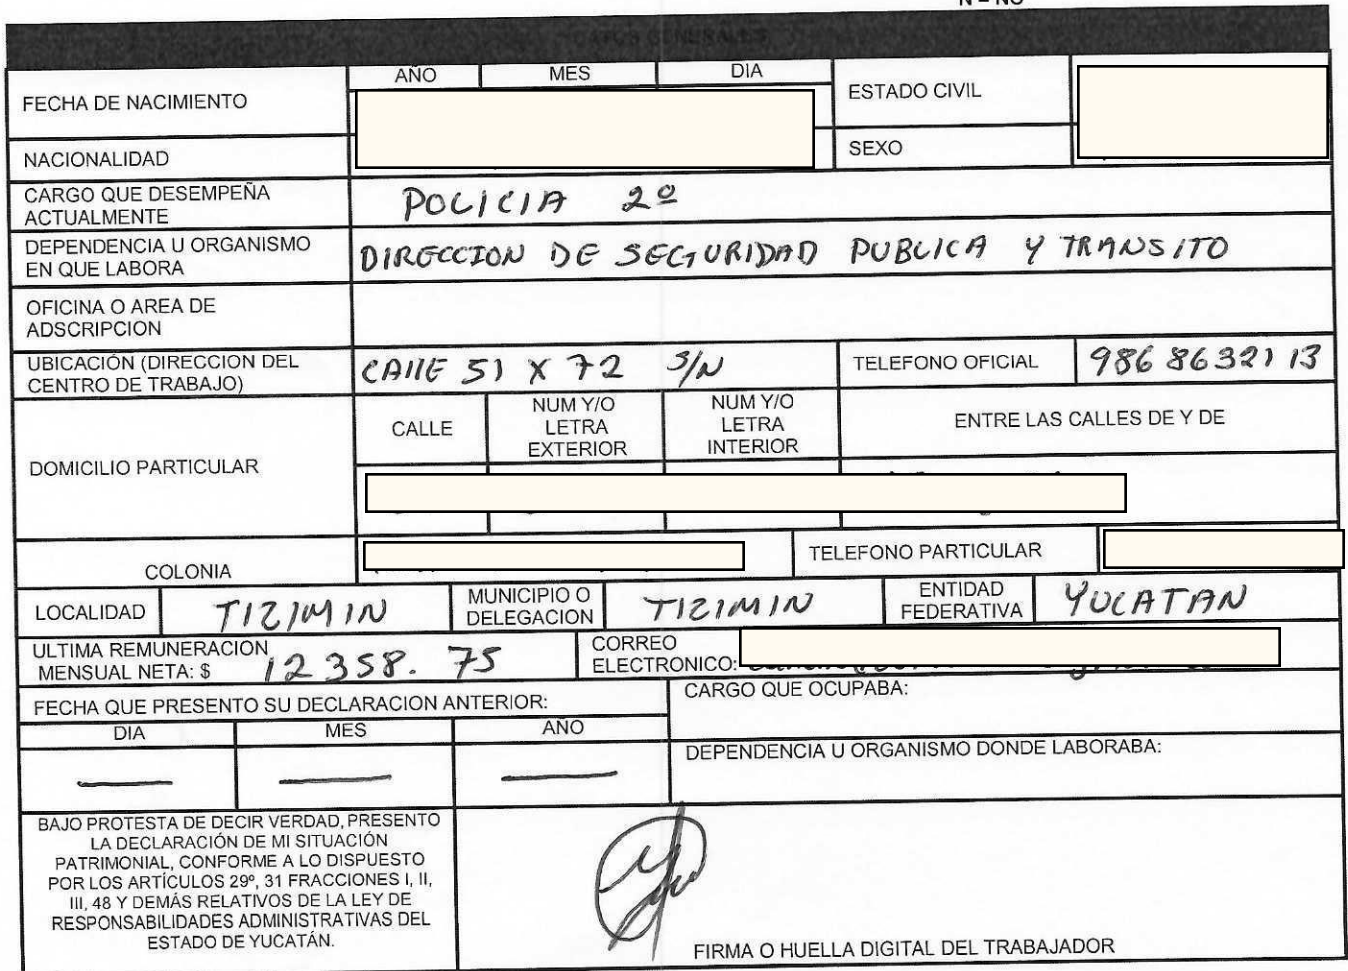 N = NO
DATOS GENERALES
FECHA DE NACIMIENTO
AÑO MES DIA
ESTADO CIVIL
NACIONALIDAD
SEXO
CARGO QUE DESEMPEÑA
ACTUALMENTE
POLICIA 2º
DEPENDENCIA U ORGANISMO
EN QUE LABORA
DIRECCION DE SEGURIDAD PUBLICA Y TRANSITO
OFICINA O AREA DE
ADSCRIPCION
UBICACIÓN (DIRECCION DEL
CENTRO DE TRABAJO)
CAllE 51 X 72 S/N
TELEFONO OFICIAL
986 86 321 13
DOMICILIO PARTICULAR
CALLE
NUM Y/O
LETRA
EXTERIOR
NUM Y/O
LETRA
INTERIOR
ENTRE LAS CALLES DE Y DE
COLONIA
TELEFONO PARTICULAR
LOCALIDAD
TIZIMIN
MUNICIPIO O
DELEGACION
TIZIMIN
ENTIDAD
FEDERATIVA
YUCATAN
ULTIMA REMUNERACION
MENSUAL NETA: $
12 358. 75
CORREO
ELECTRONICO:
FECHA QUE PRESENTO SU DECLARACION ANTERIOR:
DIA MES AÑO
CARGO QUE OCUPABA:
DEPENDENCIA U ORGANISMO DONDE LABORABA:
BAJO PROTESTA DE DECIR VERDAD, PRESENTO
LA DECLARACIÓN DE MI SITUACIÓN
PATRIMONIAL, CONFORME A LO DISPUESTO
POR LOS ARTÍCULOS 29º, 31 FRACCIONES I, II,
III, 48 Y DEMÁS RELATIVOS DE LA LEY DE
RESPONSABILIDADES ADMINISTRATIVAS DEL
ESTADO DE YUCATÁN.
FIRMA O HUELLA DIGITAL DEL TRABAJADOR